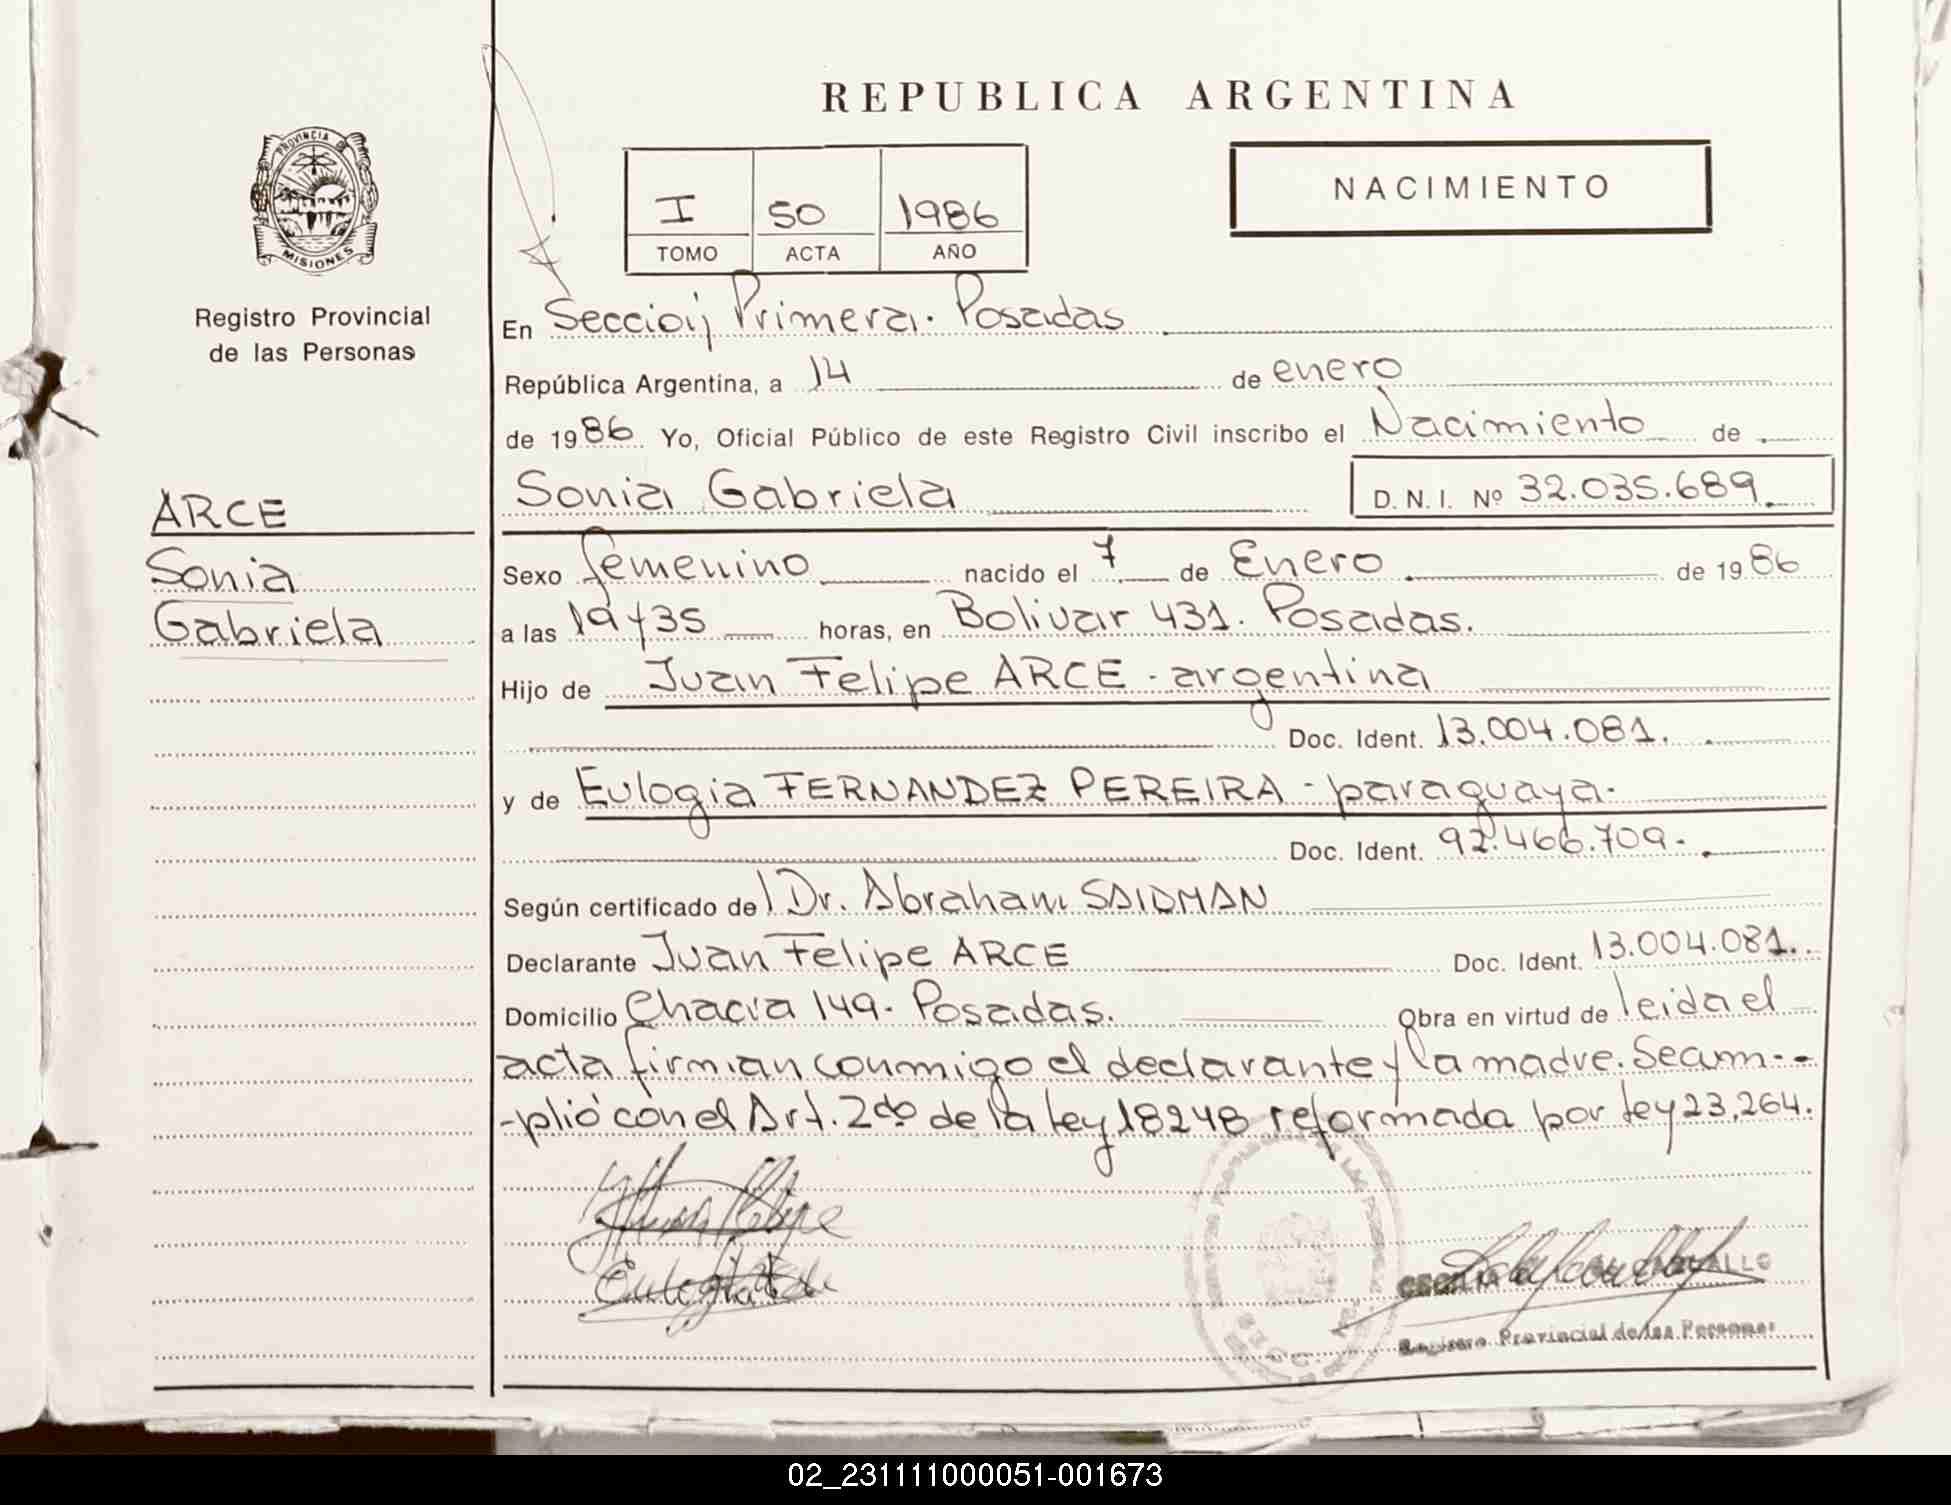 REPUBLICA ARGENTINA
PROVINCIA DE
MISIONES
Registro Provincial
de las Personas
I 50 1986
TOMO ACTA AÑO
NACIMIENTO
En Sección Primera. Posadas
República Argentina, a 14 de enero
de 1986 Yo, Oficial Público de este Registro Civil inscribo el Nacimiento de
ARCE
Sonia
Gabriela
Sonia Gabriela D.N.I. Nº 32.035.689
Sexo femenino nacido el 7 de Enero de 1986
a las 19 y 35 horas, en Bolivar 431. Posadas.
Hijo de Juan Felipe ARCE - argentina
Doc. Ident. 13.004.081.
y de Eulogia FERNANDEZ PEREIRA - paraguaya.
Doc. Ident. 92.466.709.
Según certificado del Dr. Abraham SAIDMAN
Declarante Juan Felipe ARCE Doc. Ident. 13.004.081.
Domicilio Chacra 149. Posadas. Obra en virtud de leida el
acta firman conmigo el declarante y la madre. Se cum-
-plió con el Art. 2do de la ley 18248 reformada por ley 23,264.
Juan Felipe
Registro Provincial de las Personas
02_231111000051-001673